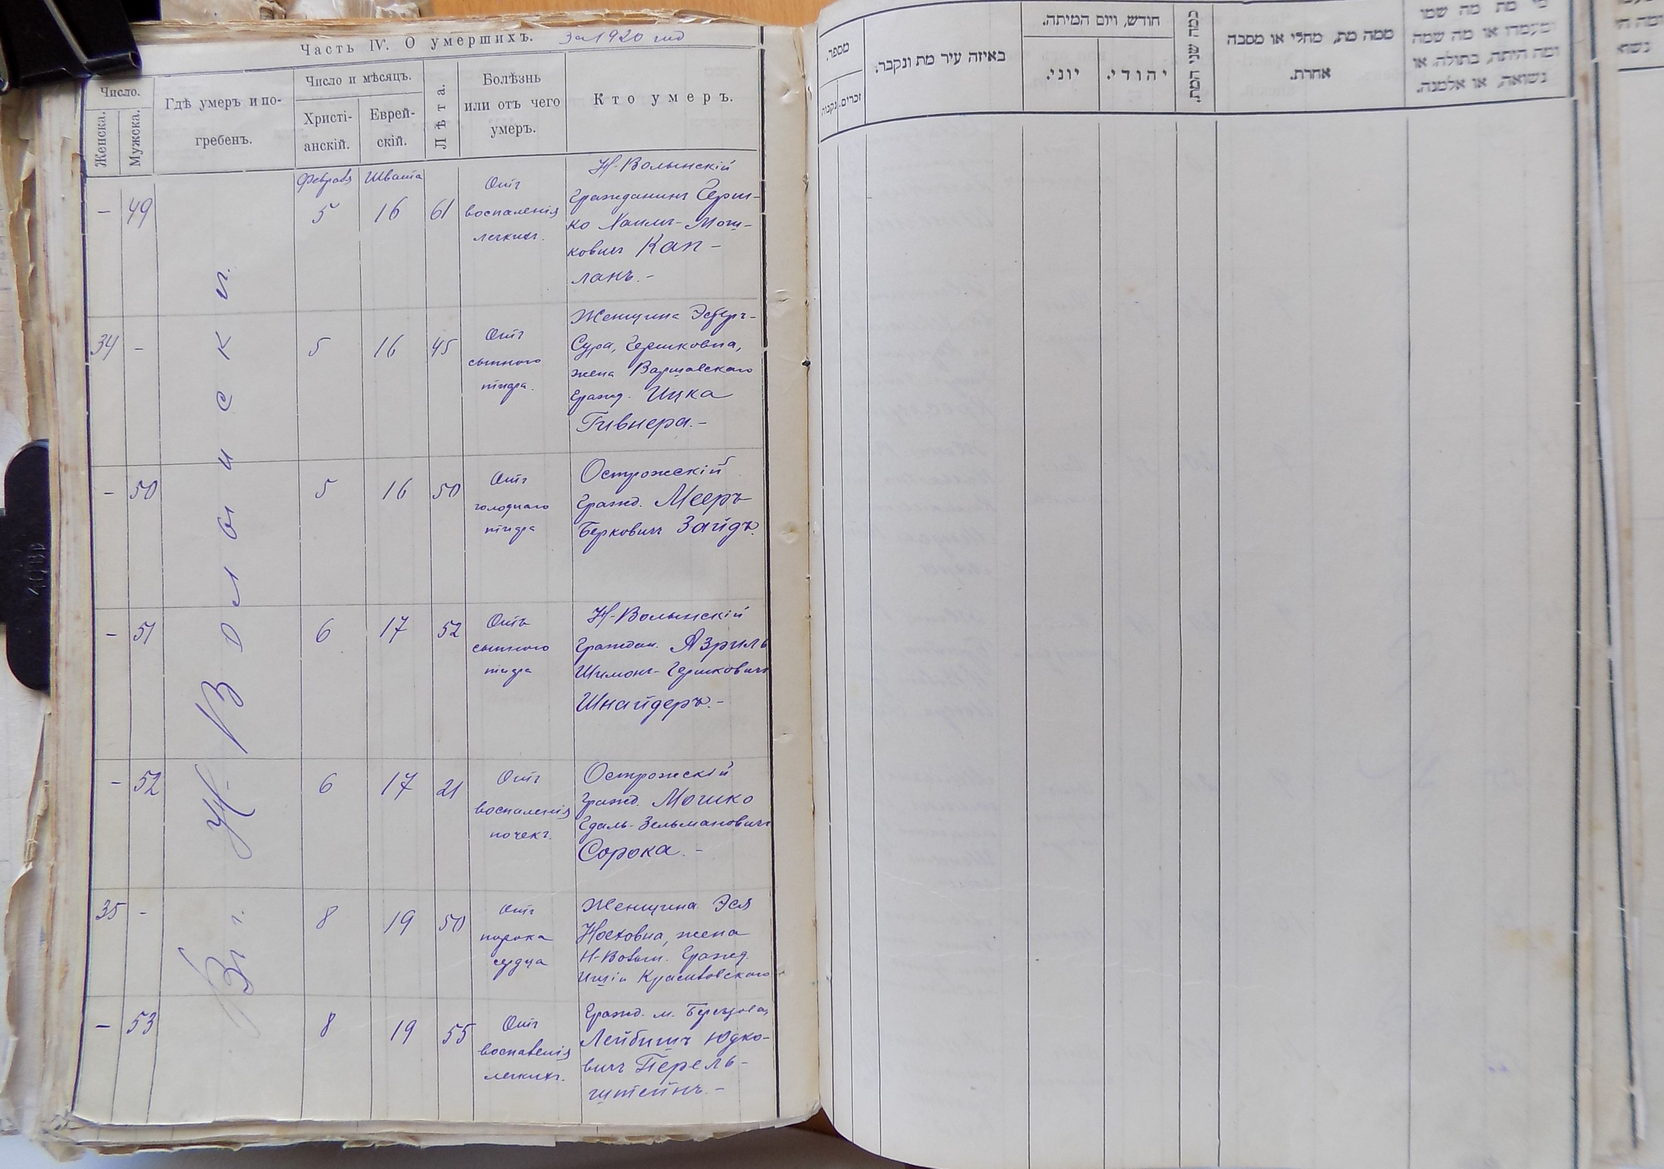 Часть IV. О умершихъ. За 1920 год
Число.
Женска.
Мужска.
Гдѣ умеръ и по-
гребенъ.
Число и мѣсяцъ.
Христі-
анскій.
Еврей-
скій.
Лѣта.
Болѣзнь
или отъ чего
умеръ.
Кто умеръ.
Въ г. Н-Волынскѣ.
Февраля Швата
– 49 5 16 61
Отъ
воспаленія
легкихъ.
Н-Волынскій
Гражданинъ Герш-
ко Хаимъ-Мош-
ковичъ Кап-
ланъ.–
34 – 5 16 45
Отъ
сыпного
тифа.
Женщина Эстеръ-
Сура, Гершковна,
жена Варшавского
Гражд. Ицка
Гивнера.–
– 50 5 16 50
Отъ
голоднаго
тифа
Острожскій
Гражд. Мееръ
Берковичъ Зайдъ.
– 51 6 17 52
Отъ
сыпного
тифа
Н-Волынскій
Граждан. Азриль
Шимонъ-Гершковичъ
Шнайдеръ.–
– 52 6 17 21
Отъ
воспаленія
почекъ.
Острожскій
Гражд. Мошко
Едаль-Зельмановичъ
Сорока.–
35 – 8 19 50
Отъ
порока
сердца
Женщина Эся
жена
Н-Волын. Гражд.
Красиловского
– 53 8 19 55
Отъ
воспаленія
легкихъ.
Гражд. м.
Лейбишъ Юдко-
вичъ Перель-
штейнъ.–
מספר.
זכרים.
נקבות
באיזה עיר מת ונקבר.
חודש, ויום המיתה.
יוני.
יהודי.
כמה שני המת.
ממה מת, מחלי או מסבה
אחרת.
מי מת מה שמו
ומעמדו או מה שמה
ומה היתה, בתולה או
נשואה, או אלמנה.